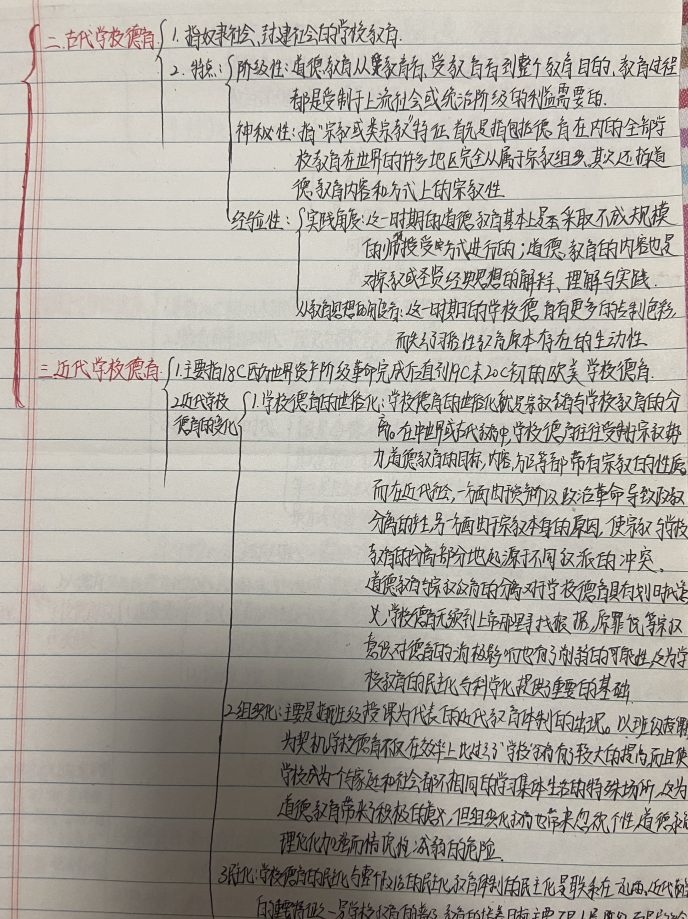 二.古代学校德育
1. 指奴隶社会、封建社会的学校教育.
2. 特点:
阶级性:道德教育从教育者,受教育者到整个教育目的、教育过程
都是受制于上流社会或统治阶级的利益需要的.
神秘性:指"宗教或类宗教"特征,首先是指包括德育在内的全部学
校教育在世界的许多地区完全从属于宗教组织,其次还指道
德教育内容和方式上的宗教性
经验性:
实践角度:这一时期的道德教育基本上是采取不成规模
的师徒授受方式进行的;道德教育的内容也是
对宗教或圣贤经典思想的解释、理解与实践.
从教育思想的角度看:这一时期的学校德育有更多的专制色彩,
而失了习俗性教育原本存在的生动性
三.近代学校德育
1.主要指18C西方世界资产阶级革命完成后直到19C末20C初的欧美学校德育.
2.近代学校
德育的变化
1.学校德育的世俗化:学校德育的世俗化就是宗教教育与学校教育的分
离。在中世或古代教育中,学校德育往往受制宗教势
力,道德教育的目标,内容,方区等都带有宗教的性质
而在近代社会,一方面由资产阶级政治革命导致政教
分离的产生,另一方面由于宗教本身的原因,使宗教与学校
教育的分离部分地起源于不同教派的冲突、
道德教育与宗教教育的分离对于学校德育具有划时代意
义,学校德育无须到上帝那里寻找根据,原罪说等宗教
意识对德育的消极影响也有了削弱的可能性,这为学
校教育的民主化与科学化提供了重要的基础.
2.组织化:主要是指班级授课为代表的近代教育体制的出现。以班级授课
为契机学校德育不仅在效率上比过去学校德育有了较大的提高而且使
学校成为一个与家庭和社会都不相同的学习集体生活的特殊场所,这为
道德教育带来了积极的意义,但组织化也带来忽视个性,道德教育
理化化加强而情感性减弱的危险.
3.民主化:学校德育的民主化与整个政治的民主化,教育体制的民主化是联系在一起的,近代教育
的重要特征之一是学校教育的普及,教育的培养目标主要